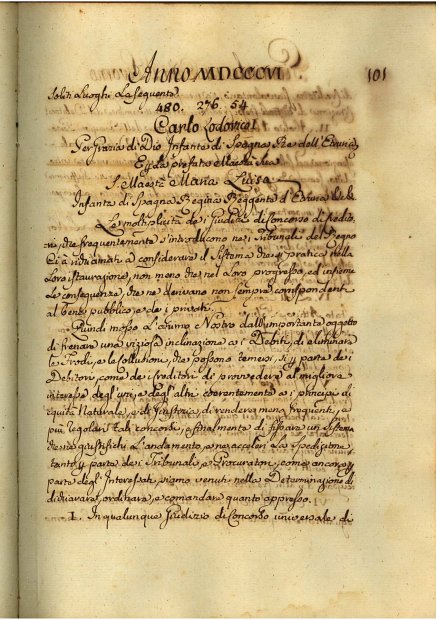 Anno MDCCCVI.
101
soliti Luoghi la seguente
480. 276. 54
Carlo Lodovico I.
Per Grazia di Dio Infante di Spagna Re dell'Etruria,
E p la prefata Maestà Sua
S. Maestà Maria Luisa
Infanta di Spagna Regina Reggente d'Etruria &c. &c.
La moltiplicità dei Giudizi di Concorso di Credito-
ri, che frequentemente s'introducono nei Tribunali del Regno
Ci à richiamati a considerare il Sistema che si pratica nella
Loro istaurazione, non meno che nel Loro progresso, ed insieme
Le conseguenze, che ne derivano non sempre corrispondenti
al bene pubblico, e dei privati.
Quindi mosso L'animo Nostro dall'importante oggetto
di frenare una viziosa inclinazione ai Debiti, di eliminare
le Frodi, e le collusioni, che possono temersi, sì p parte dei
Debitori, come dei Creditori di provvedere al migliore
interesse degl'uni, e degl'altri coerentemente ai principi di
equità Naturale, e di Giustizia, di rendere meno frequenti, e
più regolari tali concorsi, e finalmente di fissare un Sistema
che ne giustifichi L'andamento, e ne acceleri La spedizione
tanto p parte dei Tribunali, e Procuratori, come ancora p
parte degl'Interessati, siamo venuti nella Determinazione di
dichiarare, ordinare, e comandare quanto appresso.
I. In qualunque Giudizio di Concorso universale di